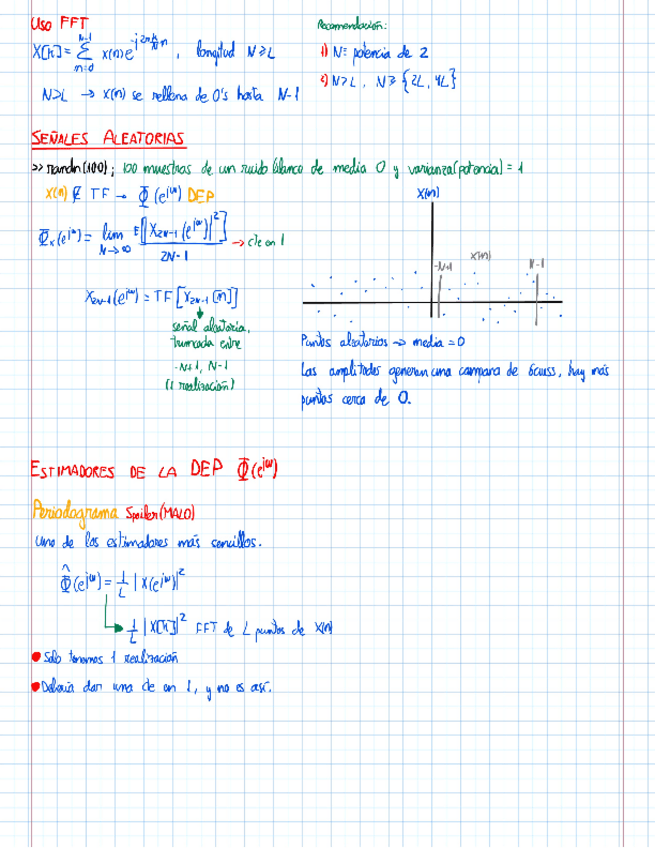 Uso FFT
X[k] = Σ_{n=0}^{N-1} x(n) e^{-j 2π k/N n}, longitud N ≥ L
N>L → x(n) se rellena de 0's hasta N-1
Recomendación:
1) N = potencia de 2
2) N>L, N ≥ {2L, 4L}
SEÑALES ALEATORIAS
>> randn(100); 100 muestras de un ruido blanco de media 0 y varianza (potencia) = 1
x(n) ∉ TF → Φ(e^{jω}) DEP
Φ_x(e^{jω}) = lim_{N→∞} E[|X_{2N-1}(e^{jω})|^2] / 2N-1 → cte en 1
X_{2N-1}(e^{jω}) = TF[X_{2N-1}[n]]
señal aleatoria,
truncada entre
-N+1, N-1
(1 realización)
X(n)
-N+1
X(n)
N-1
Puntos aleatorios → media = 0
Las amplitudes generan una campana de Gauss, hay más
puntos cerca de 0.
ESTIMADORES DE LA DEP Φ(e^{jω})
Periodograma Spoiler (MALO)
Uno de los estimadores más sencillos.
Φ̂(e^{jω}) = 1/L |X(e^{jω})|^2
1/L |X[k]|^2 FFT de L puntos de X(n)
• Solo tenemos 1 realización
• Debería dar una cte en 1, y no es así.